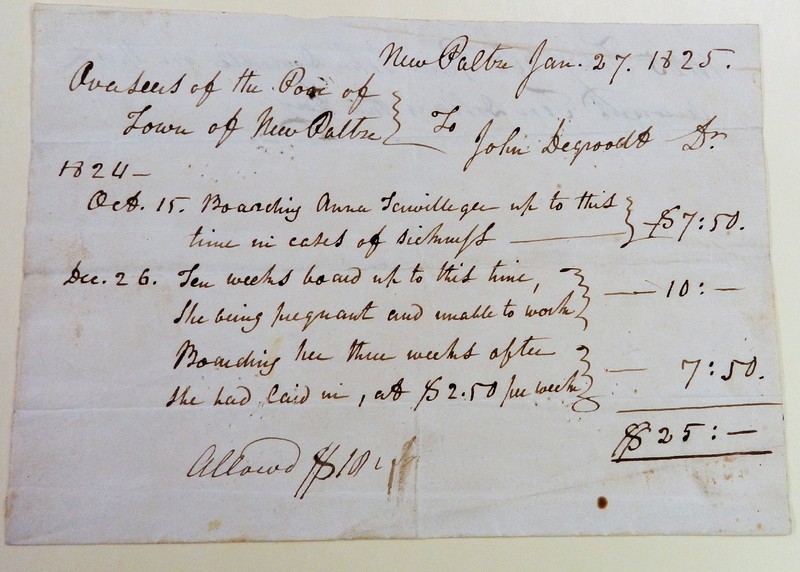 New Paltz Jan. 27. 1825.
Overseers of the Poor of
Town of New Paltz } To John Degroodt Dr
1824 –
Oct. 15. Boarding Anna Terwilleger up to this
time in cases of sickness — $7:50.
Dec. 26. Ten weeks board up to this time,
she being pregnant and unable to work — 10: –
Boarding her three weeks after
she had laid in, at $2.50 per week — 7:50.
$25: –
Allowd